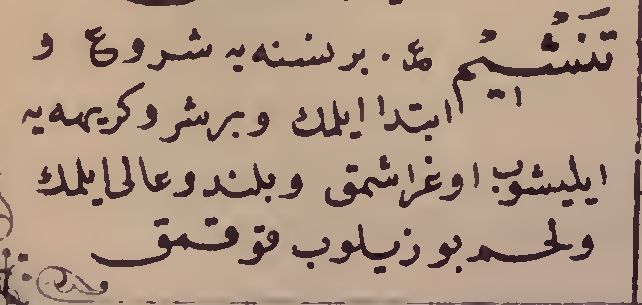 تَنْشِيُم ع. بر نسنه يه شروع و
ابتدا ايلمك و بر شر و كريهه يه
ايليشوب اوغراشمق و بلند و عالى ايلمك
و لحم بوزيلوب قوقمق